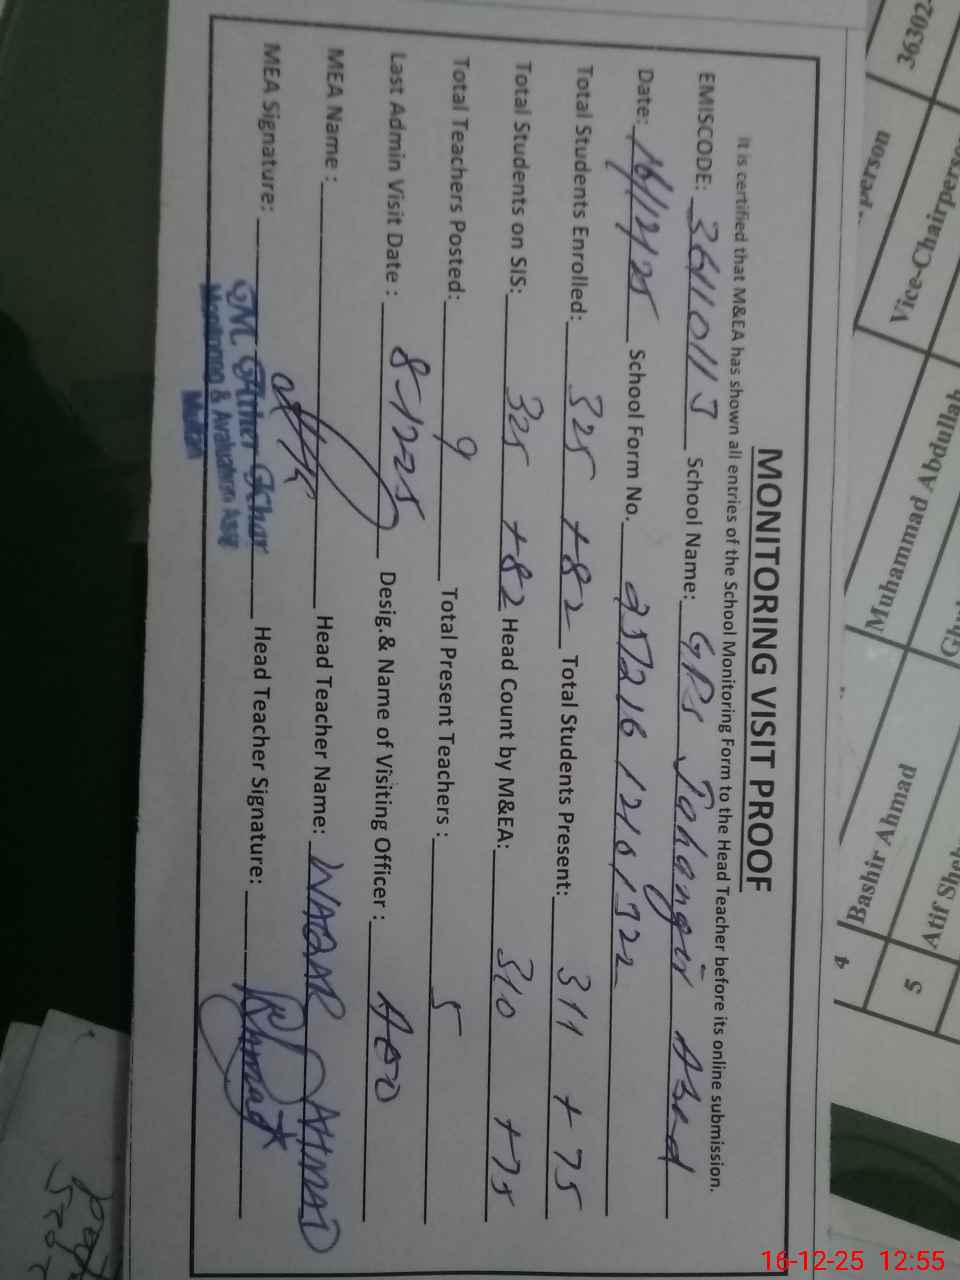 MONITORING VISIT PROOF
It is certified that M&EA has shown all entries of the School Monitoring Form to the Head Teacher before its online submission.
EMISCODE: School Name: GPS Jahangir Abad
Date: 16/12/25 School Form No.
Total Students Enrolled: 325 +82 Total Students Present: 311 + 75
Total Students on SIS: 325 +82 Head Count by M&EA: 310 +75
Total Teachers Posted: 9 Total Present Teachers : 5
Last Admin Visit Date : 8-12-25 Desig.& Name of Visiting Officer : AEO
MEA Name : Head Teacher Name: WAQAR AHMAD
MEA Signature: Head Teacher Signature:
Multan
36302
Vice-Chairperson
person
Muhammad Abdullah
Bashir Ahmad
4
5
16-12-25 12:55